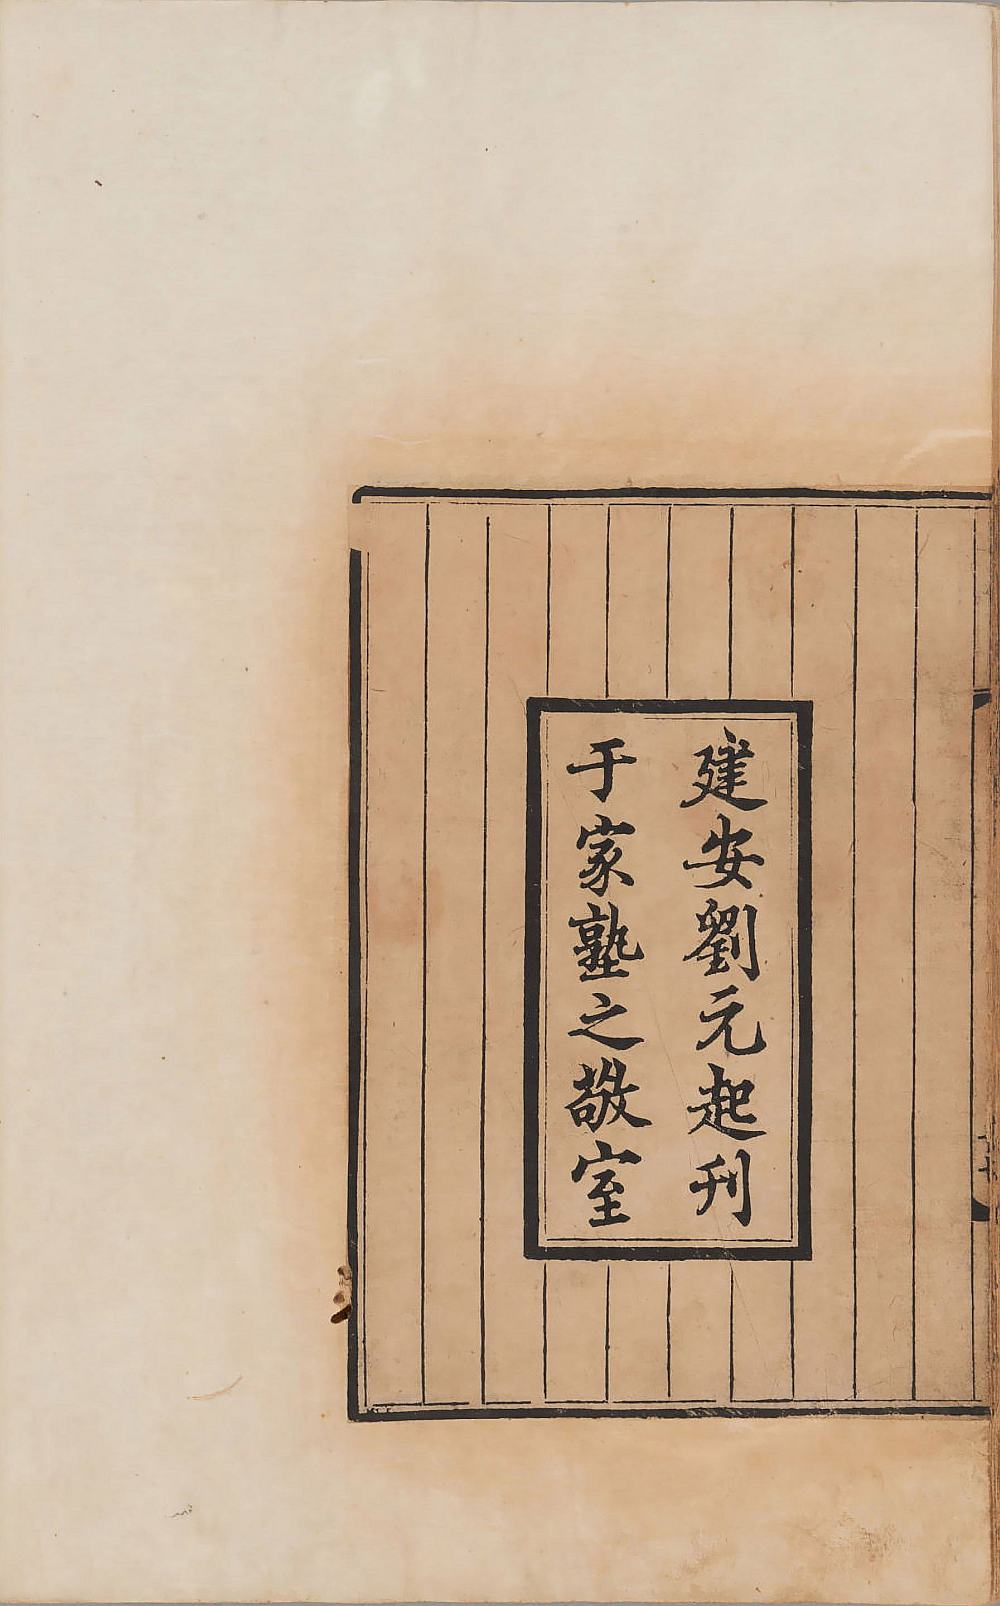 建安劉元起刊
于家塾之敬室